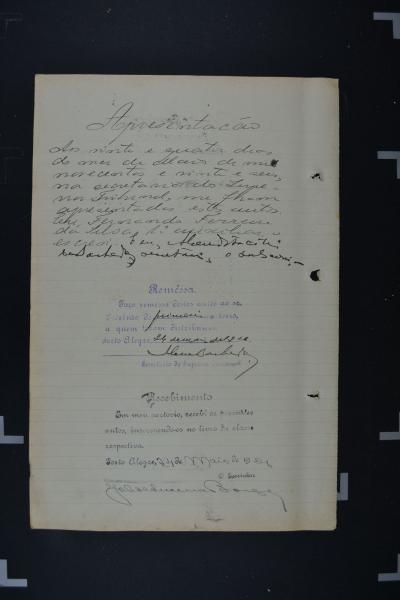 Apresentação
Aos vinte e quatro dias
do mez de Maio de mil
novecentos e vinte e seis,
na secretaria do Supe-
rior Tribunal, me foram
apresentados estes autos.
Eu, Fernando Ferreira
da Silva,
escrevi. Eu,
secretario, o subscrevi.
Remessa
Faço remessa destes autos ao sr.
Escrivão do primeiro
a quem foram distribuidos
Porto Alegre, 24 de maio de 926
Secretario do Superior Tribunal
Recebimento
Em meu cartorio, recebi os presentes
autos, inscrevendo-os no livro da classe
respectiva.
Porto Alegre, 24 de Maio de 926
O Escrivão